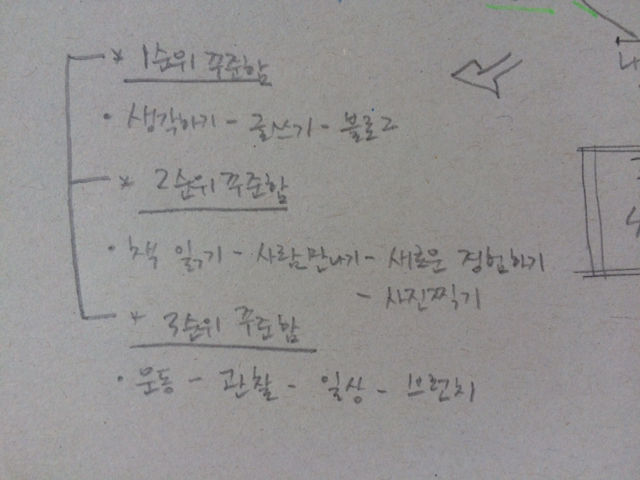 * 1순위 꾸준함
• 생각하기 - 글쓰기 - 블로그
* 2순위 꾸준함
• 책 읽기 - 사람만나기 - 새로운 경험하기
- 사진찍기
* 3순위 꾸준함
• 운동 - 관찰 - 일상 - 브런치